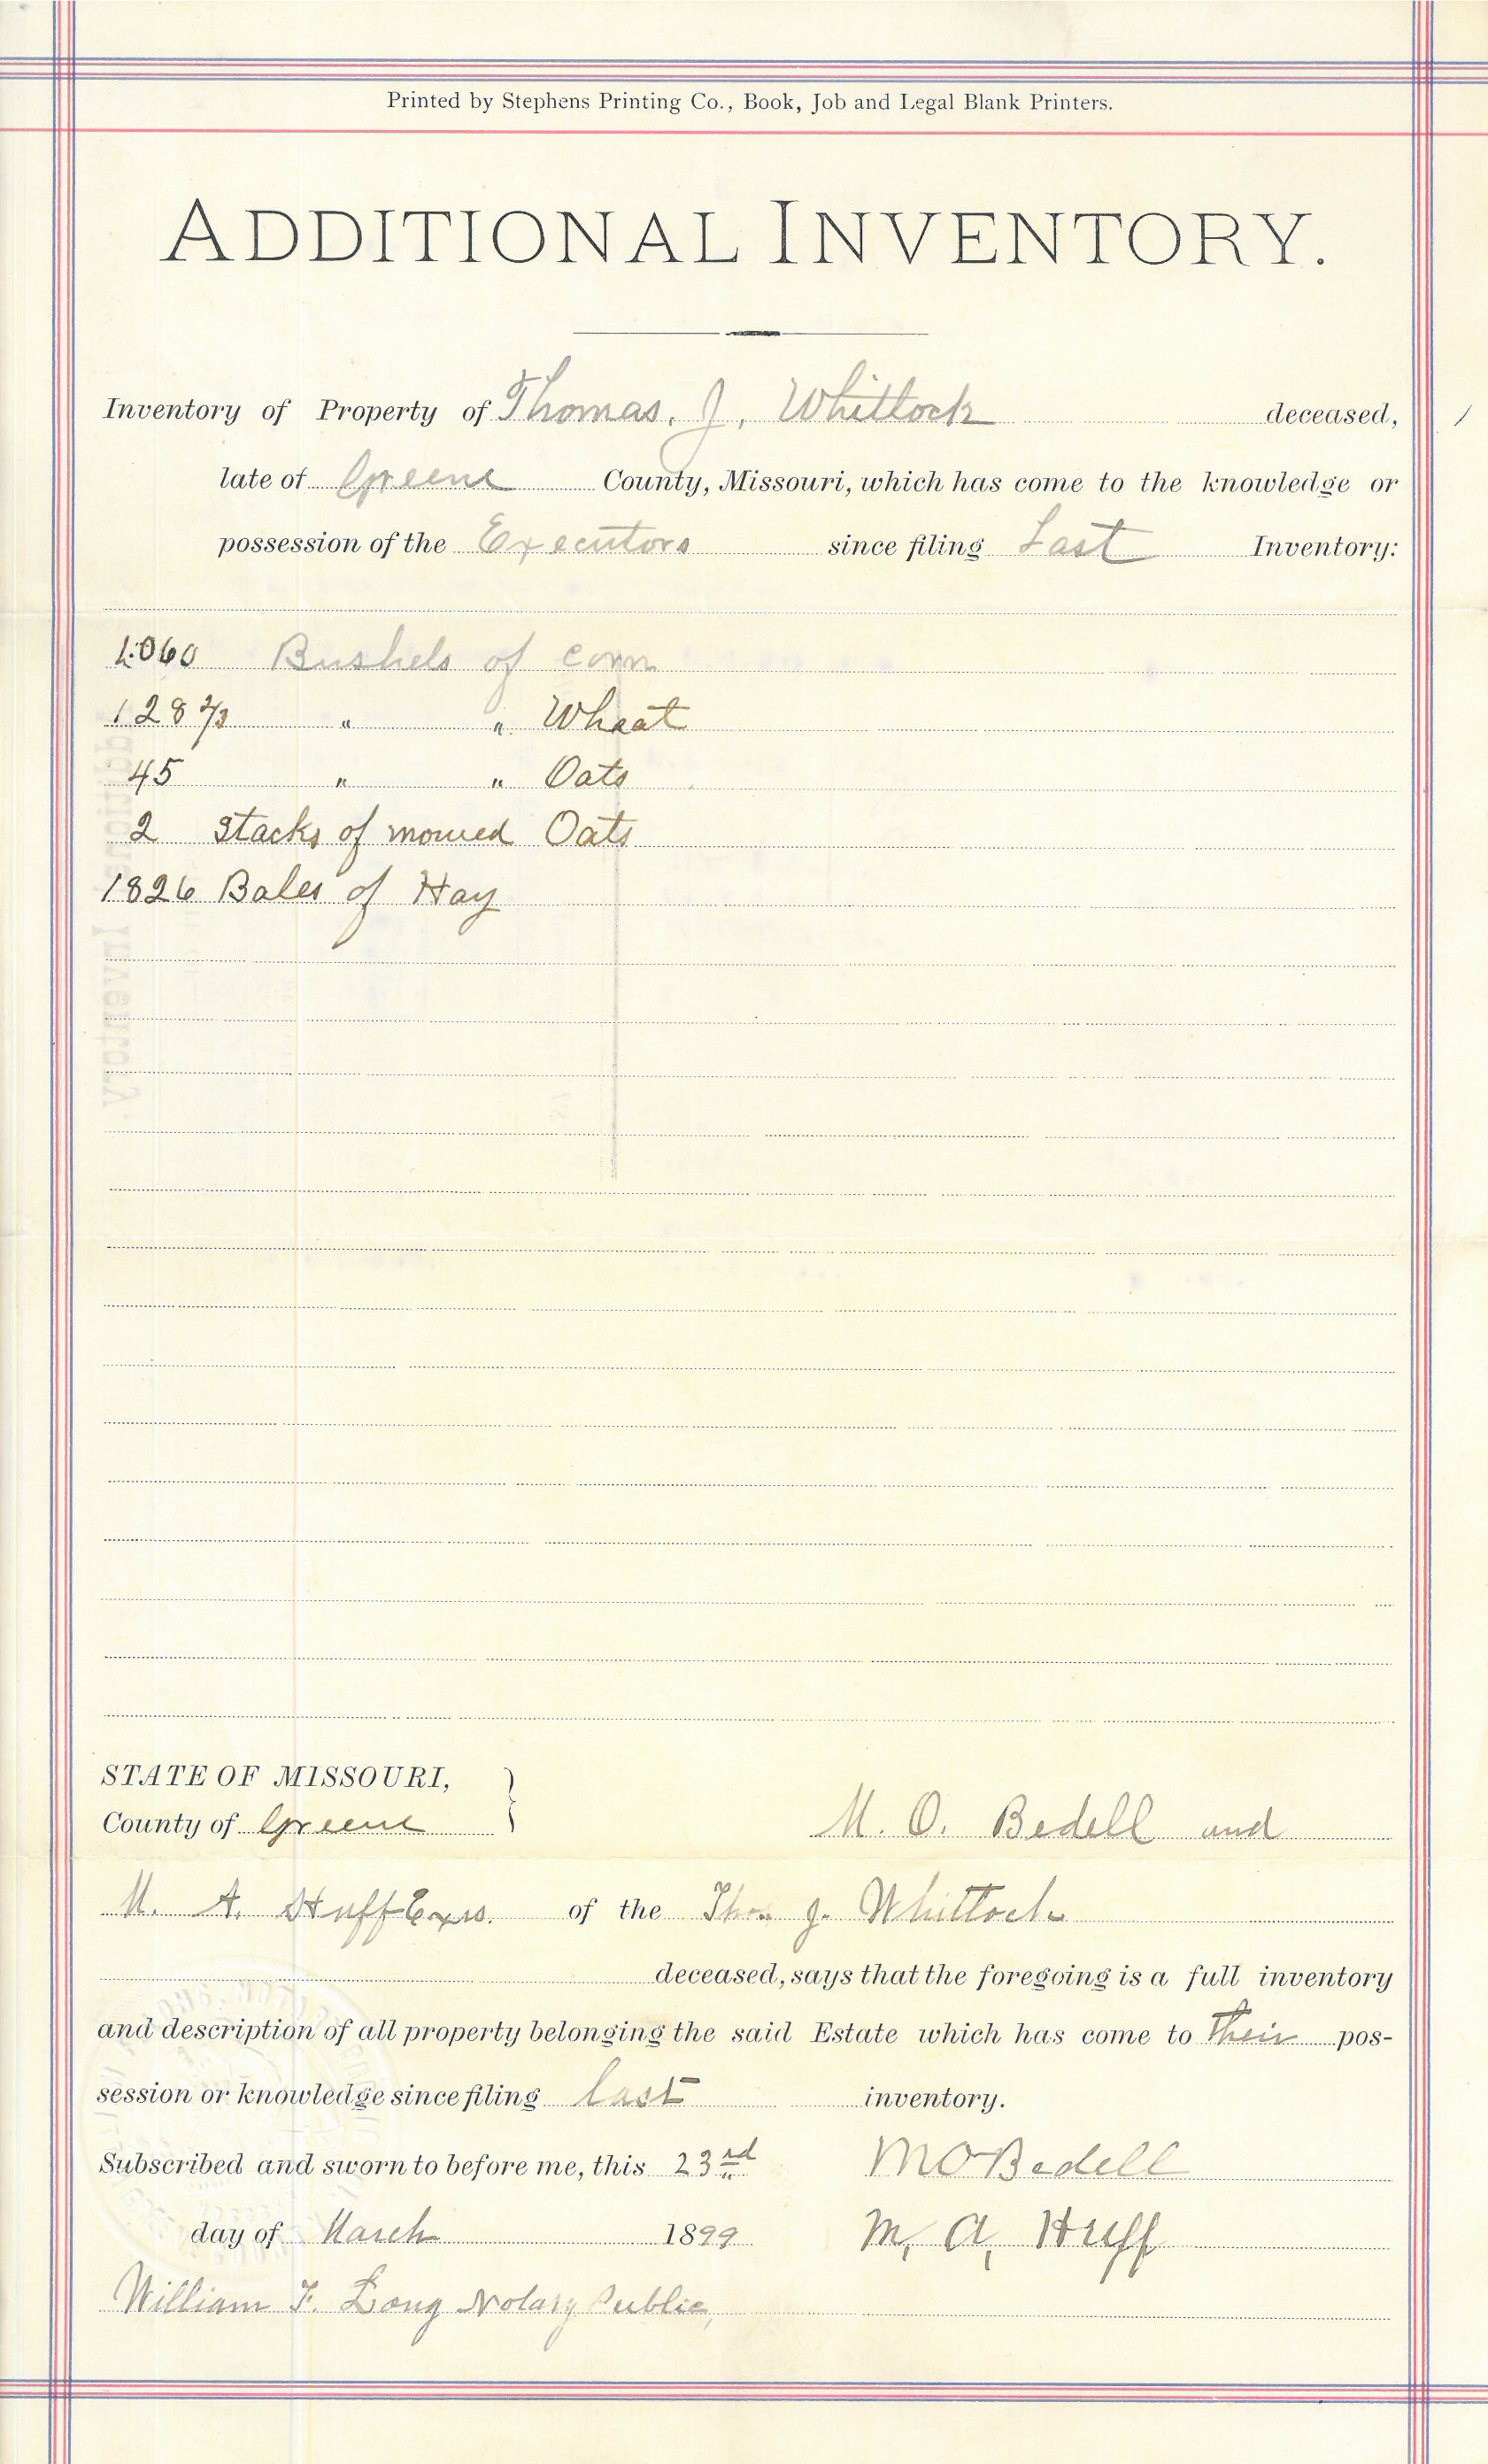 Printed by Stephens Printing Co., Book, Job and Legal Blank Printers.
ADDITIONAL INVENTORY.
Inventory of Property of Thomas. J. Whitlock deceased,
late of Greene County, Missouri, which has come to the knowledge or
possession of the Executors since filing Last Inventory:
1060 Bushels of corn
128 2/3 " " Wheat
45 " " Oats
2 Stacks of mowed Oats
1826 Bales of Hay
STATE OF MISSOURI,
County of Greene } M. O. Bedell and
M. A. Huff Exrs. of the Thos J. Whitlock
deceased, says that the foregoing is a full inventory
and description of all property belonging the said Estate which has come to Their pos-
session or knowledge since filing last inventory.
Subscribed and sworn to before me, this 23rd M O Bedell
day of March 1899 M. A. Huff
William F. Long Notary Public,